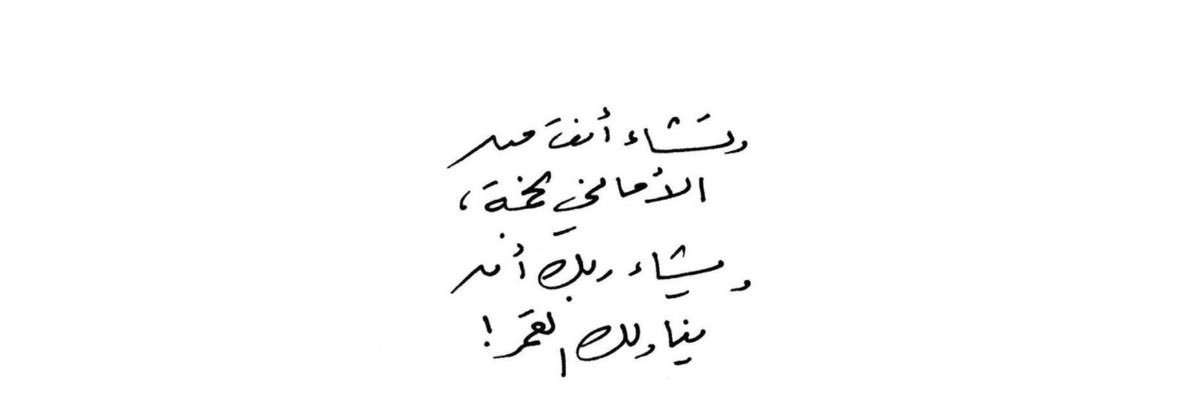 وتَشاء أنتَ من
الأماني نجمةَ ،
ويشاء ربك أن
يناولك القمَر !